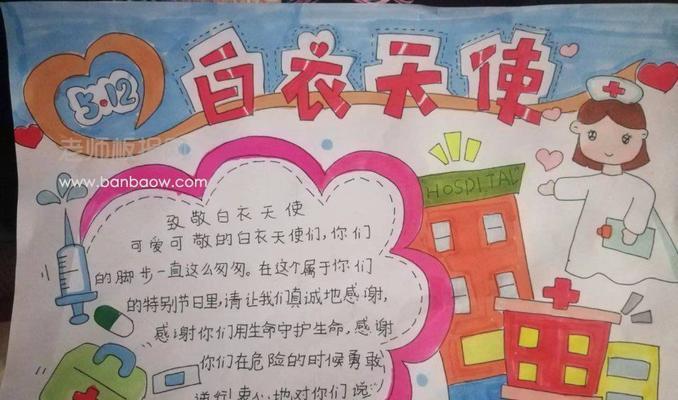 5.12
白衣天使
老师板报
www.banbaow.com
HOSPITAL
致敬白衣天使
可爱可敬的白衣天使们，你们
的脚步一直这么匆匆。在这个属于你们
的特别节日里，请让我们真诚地感谢，
感谢你们用生命守护生命，感谢
你们在危险的时候勇敢
逆行！衷心地对你们说